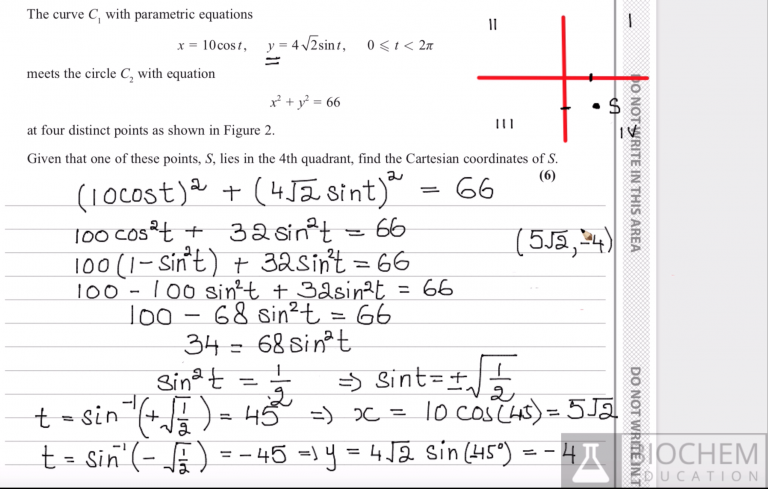 The curve C₁ with parametric equations
x = 10cos t, y = 4√2 sin t, 0 ⩽ t < 2π
meets the circle C₂ with equation
x² + y² = 66
at four distinct points as shown in Figure 2.
Given that one of these points, S, lies in the 4th quadrant, find the Cartesian coordinates of S.
(6)
II
I
III
IV
S
(10cost)² + (4√2 sint)² = 66
100 cos²t + 32sin²t = 66
(5√2, -4)
100(1-sin²t) + 32sin²t = 66
100 - 100 sin²t + 32sin²t = 66
100 - 68 sin²t = 66
34 = 68sin²t
sin²t = 1/2 ⇒ sint = ±√1/2
t = sin⁻¹(+√1/2) = 45° ⇒ x = 10 cos(45) = 5√2
t = sin⁻¹(-√1/2) = -45 ⇒ y = 4√2 sin(45°) = -4
DO NOT WRITE IN THIS AREA
DO NOT WRITE IN T
BIOCHEM
EDUCATION